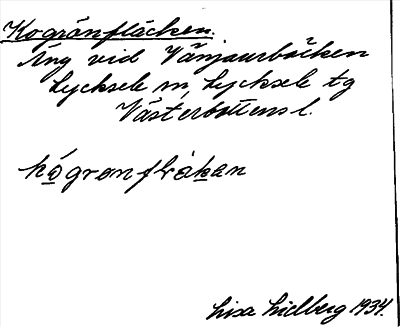 Kogränfläcken.
Äng vid Vänjaurbäcken
Lycksele sn, Lycksele tg
Västerbottens l.
Lisa Lidberg 1934.